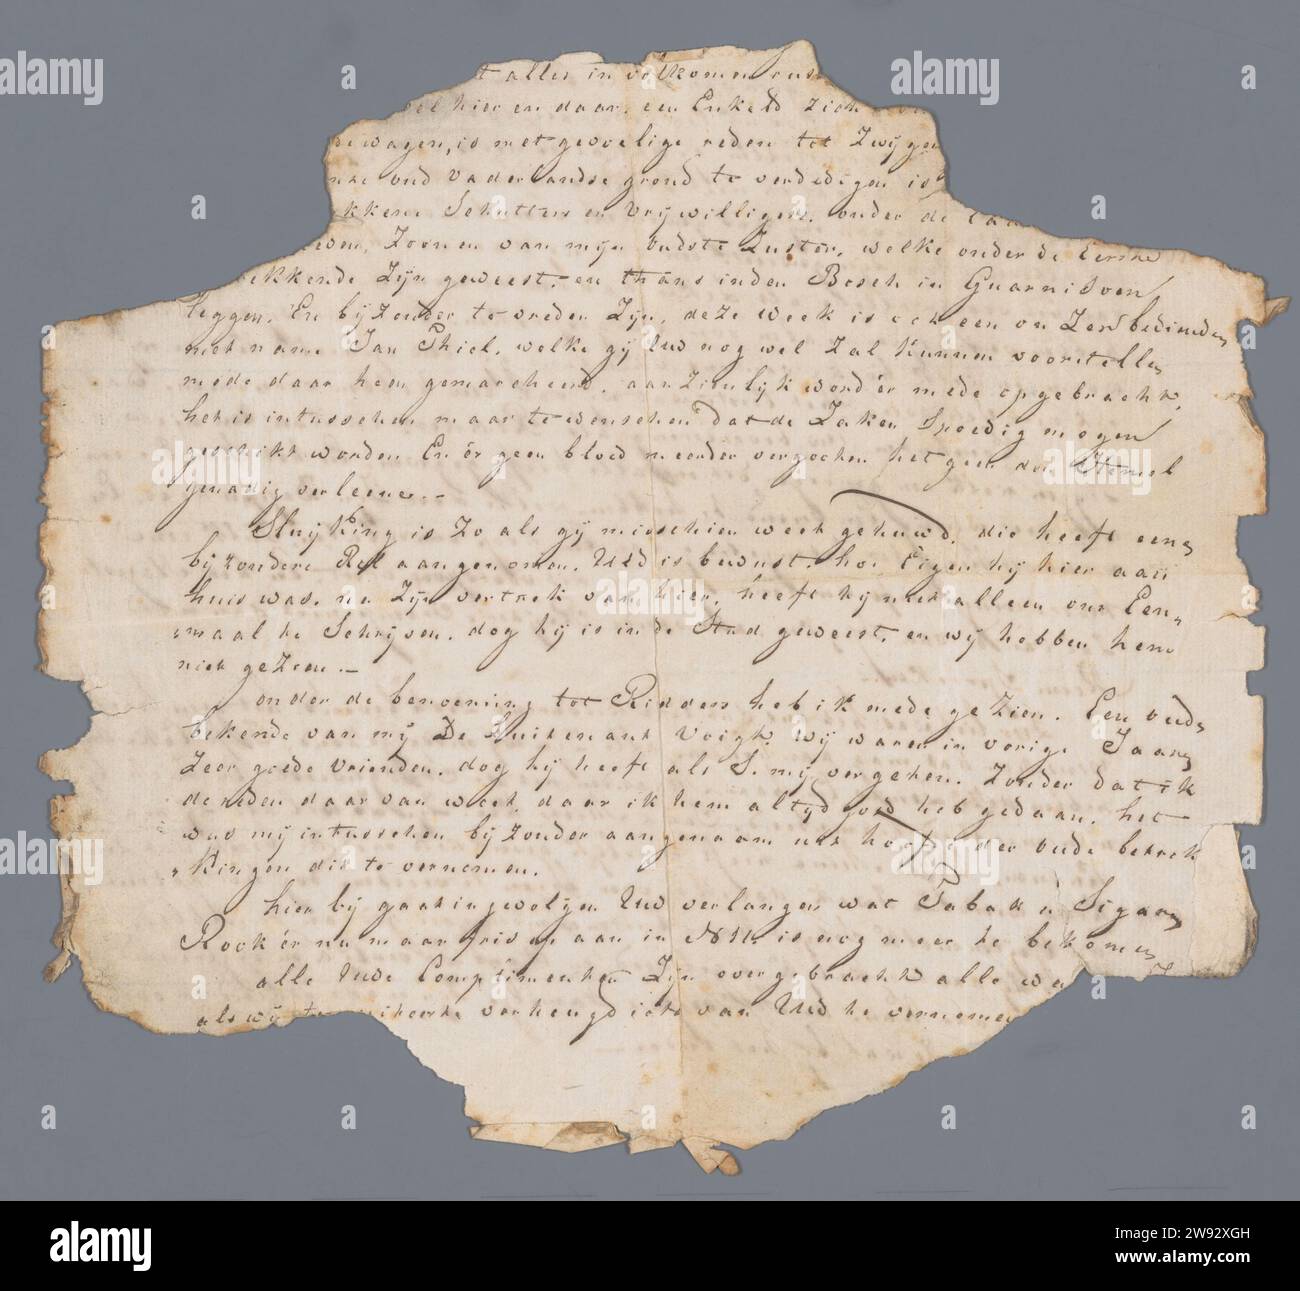 alles in volkomen rust
hier en daar, een Enkeld zich
de wagen, is met gevoelige reden tot Zwijgen
oud vaderlandse grond te verdedigen is
kkene Schutters en vrijwilligers, onder de
Zoonen van mijn oudste Zuster, welke onder de Eerste
ekkende Zijn geweest, en thans inden Bosch in Guarnisoen
leggen, En bijzonder te vreden Zijn, deze week is ook een on Zer bedienden
met name Jan Thiel, welke gij Uw nog wel zal kunnen voorstellen
mede daar heen gemarcheerd, aan Zienlijk word'er mede opgebracht,
het is intusschen maar te wenschen dat de Zaken Spoedig mogen
geschikt worden En ér geen bloed meerder vergoten het geen den Hemel
genadig verleene. –
Sluijking is zo als gij misschien weet gehuwd, die heeft een
bijzondere Rol aangenomen, UEd is bewust, hoe Eigen hij hier aan
huis was, na Zijn vertrek van hier, heeft hij niet alleen ons Een„
„maal te Schrijven, dog hij is in de Stad geweest, en wij hebben hem
niet gezien. –
onder de benoeming tot Ridders heb ik mede gezien. Een oude
bekende van mij De Luitenant Voigt, wij waren in vorige Jaren
Zeer goede vrienden, dog hij heeft als S. mij vergeten. Zonder dat ik
de reden daar van weet, daar ik hem altijd goed heb gedaan, het
was mij intusschen bijzonder aangenaam uit hoofde der oude betrek
„kingen dit te vernemen.
hier bij gaat ingevolgen Uw verlangen wat Tabak & Sigaren
Rook ér nu maar fris op aan in N11, is nog meer te bekomen
alle Uwe Complimenten Zijn overgebracht alle
als wij verheugd iets van UEd te vernemen